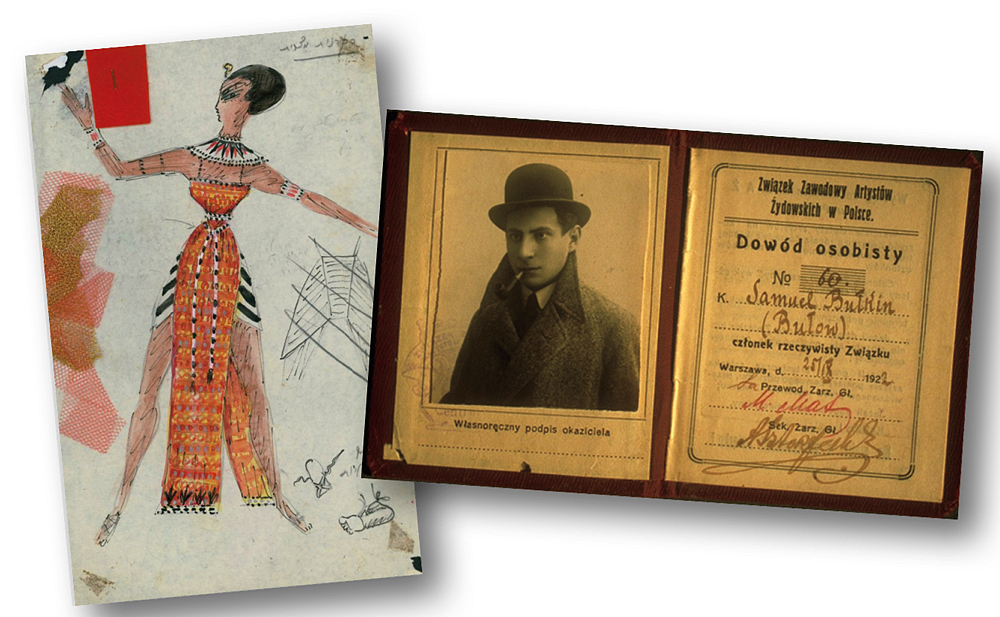 Własnoręczny podpis okaziciela
Związek Zawodowy Artystów
Żydowskich w Polsce.
Dowód osobisty
No 60.
K. Samuel Bulkin
(Bułow)
członek rzeczywisty Związku
Warszawa, d. 25/ 1922
Przewod. Zarz. Gł.
Sek. Zarz. Gł.